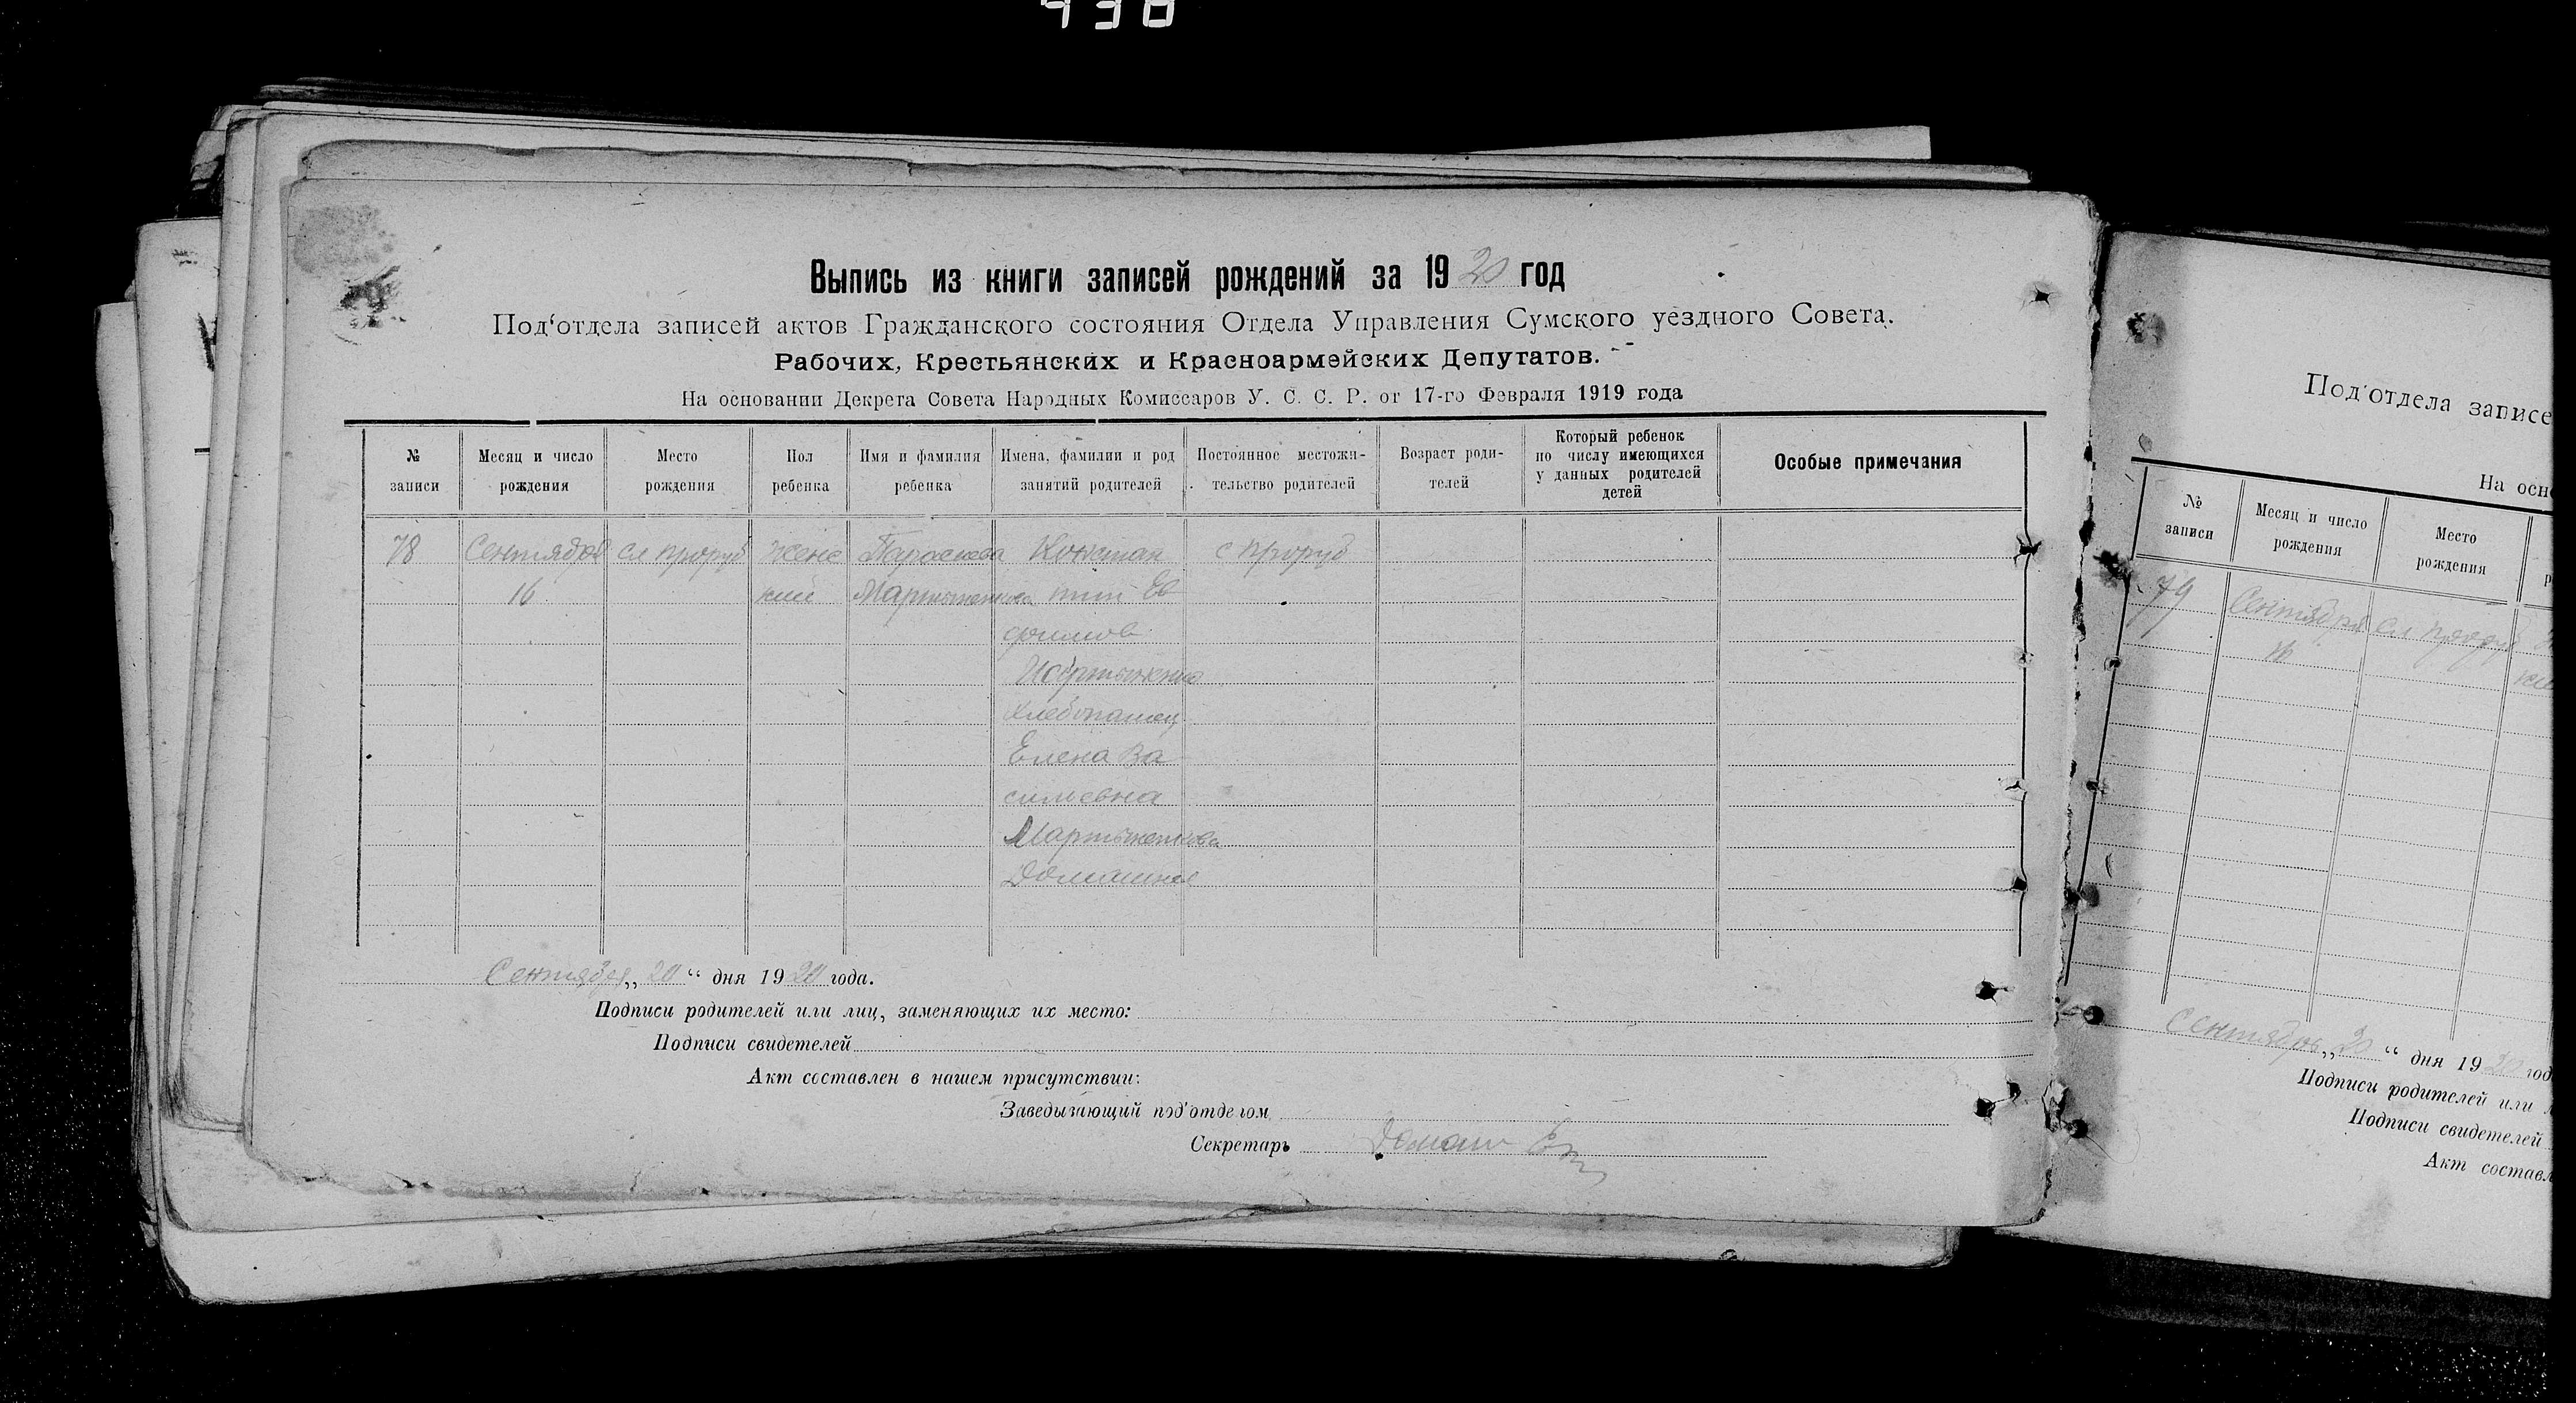 Выпись из книги записей рождений за 1920 год
Под'отдела записей актов Гражданского состояния Отдела Управления Сумского уездного Совета.
Рабочих, Крестьянских и Красноармейских Депутатов.
На основании Декрета Совета Народных Комиссаров У. С. С. Р. от 17-го Февраля 1919 года
№ записи
Месяц и число рождения
Место рождения
Пол ребенка
Имя и фамилия ребенка
Имена, фамилии и род занятий родителей
Постоянное местожительство родителей
Возраст родителей
Который ребенок по числу имеющихся у данных родителей детей
Особые примечания
78 Сентября сл Проруб женс Параскева Констан с Проруб
16 кий тин Ев
фимов
хлебопашец
Елена Ва
сильевна
Домашнее
Сентября „20“ дня 1920 года.
Подписи родителей или лиц, заменяющих их место:
Подписи свидетелей
Акт составлен в нашем присутствии:
Заведывающий под'отделом
Секретарь
Под'отдела записе
На осн
№ записи
Месяц и число рождения
Место рождения
79 Сентября сл Проруб
16
Сентября „20“ дня 1920 год
Подписи родителей или
Подписи свидетелей
Акт составл